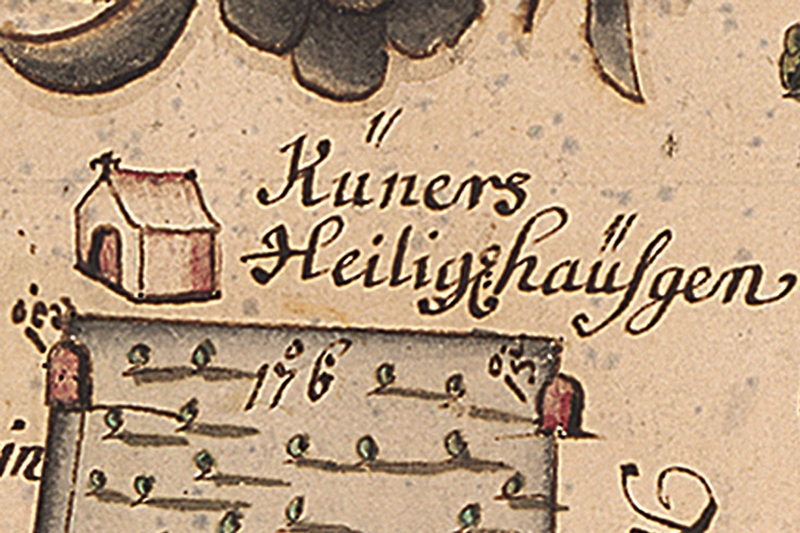 Küners
Heiligehaüsgen
176
in